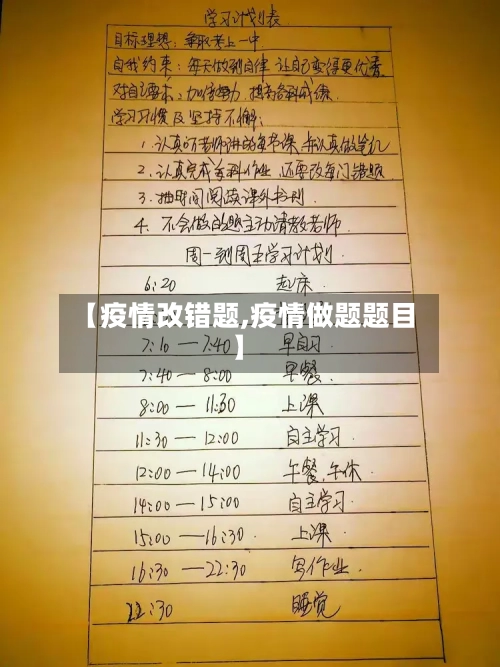 学习计划表
目标理想：争取考上一中
自我约束：每天做到自律 让自己变得更优秀
对自己要求：加倍努力 提高各科成绩.
学习习惯及坚持不懈：
1. 认真听老师讲的每节课，并认真做笔记
2. 认真完成每科作业，还要改每门错题
3. 抽时间阅读课外书刊
4. 不会做的题主动请教老师.
周一到周五学习计划
6:20 起床
【疫情改错题,疫情做题题目】
7:10 — 7:40 早自习
7:40 — 8:00 早餐.
8:00 — 11:30 上课
11:30 — 12:00 自主学习.
12:00 — 14:00 午餐.午休.
14:00 — 15:00 自主学习.
15:00 — 16:30. 上课.
16:30 — 22:30 写作业.
22:30 睡觉